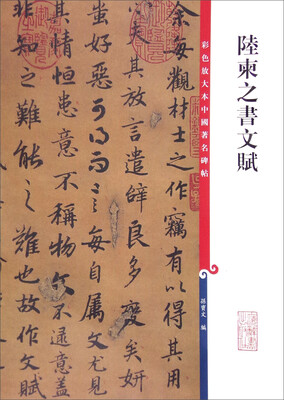 陸柬之書文賦
彩色放大本中國著名碑帖
孫寶文 編
余每觀材士之作竊有以得其用
心夫其放言遣辭良多變矣妍
蚩好惡可得而言每自属文尤見
其情恒患意不稱物文不逮意盖
非知之難能之難也故作文賦